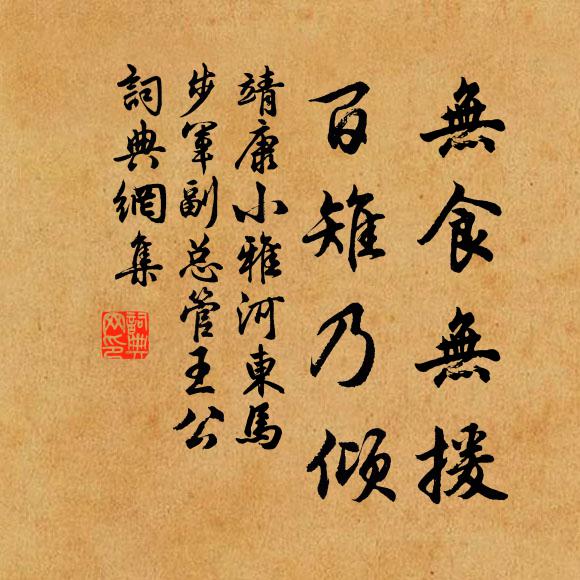 無食無援
百雉乃傾
靖康小雅河東馬
步軍副总管王公
詞典網集
詞典
网印